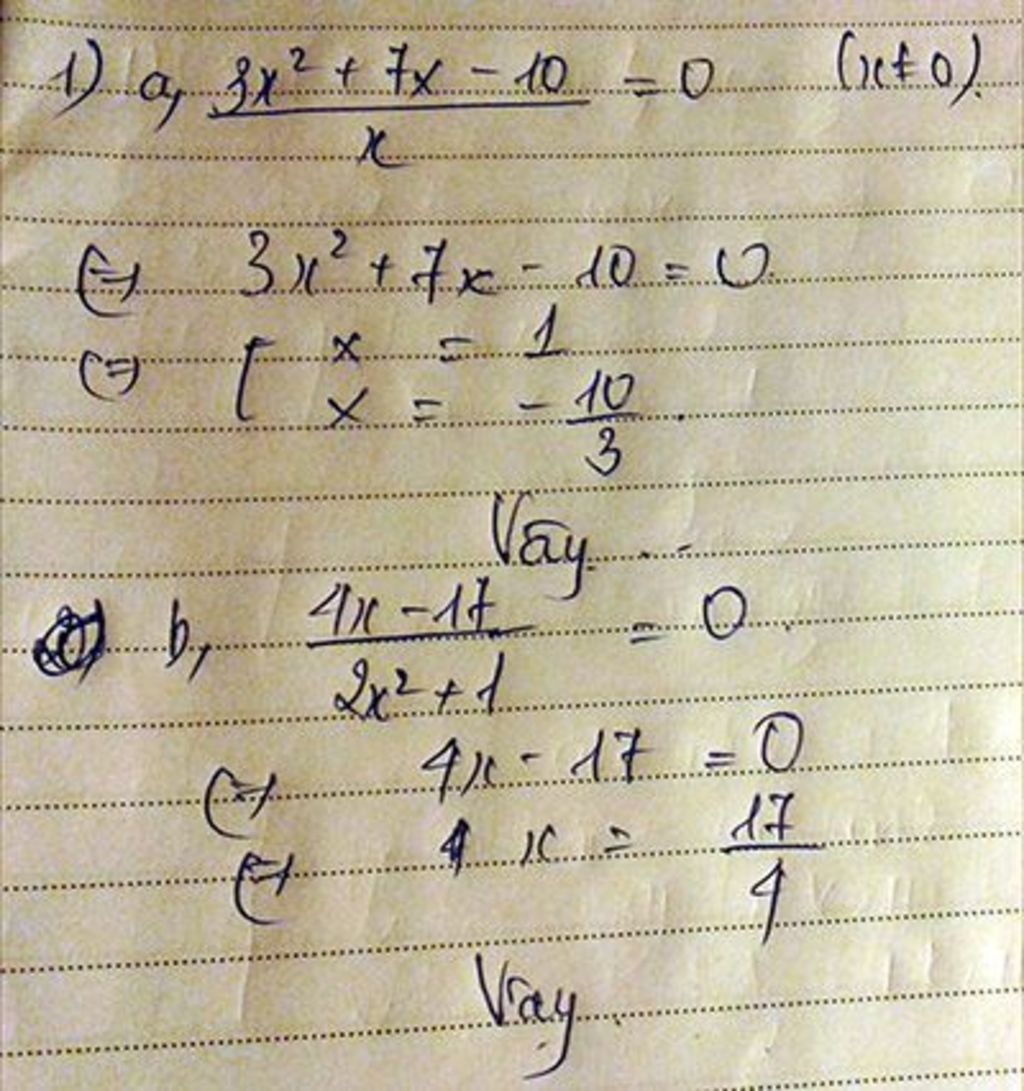 1) a, 3x² + 7x - 10 / x = 0 (x ≠ 0).
(=) 3x² + 7x - 10 = 0
(=) [ x = 1
x = - 10/3 .
Vậy ...
b, 4x - 17 / 2x² + 1 = 0 .
(=) 4x - 17 = 0
(=) x = 17/4
Vậy .